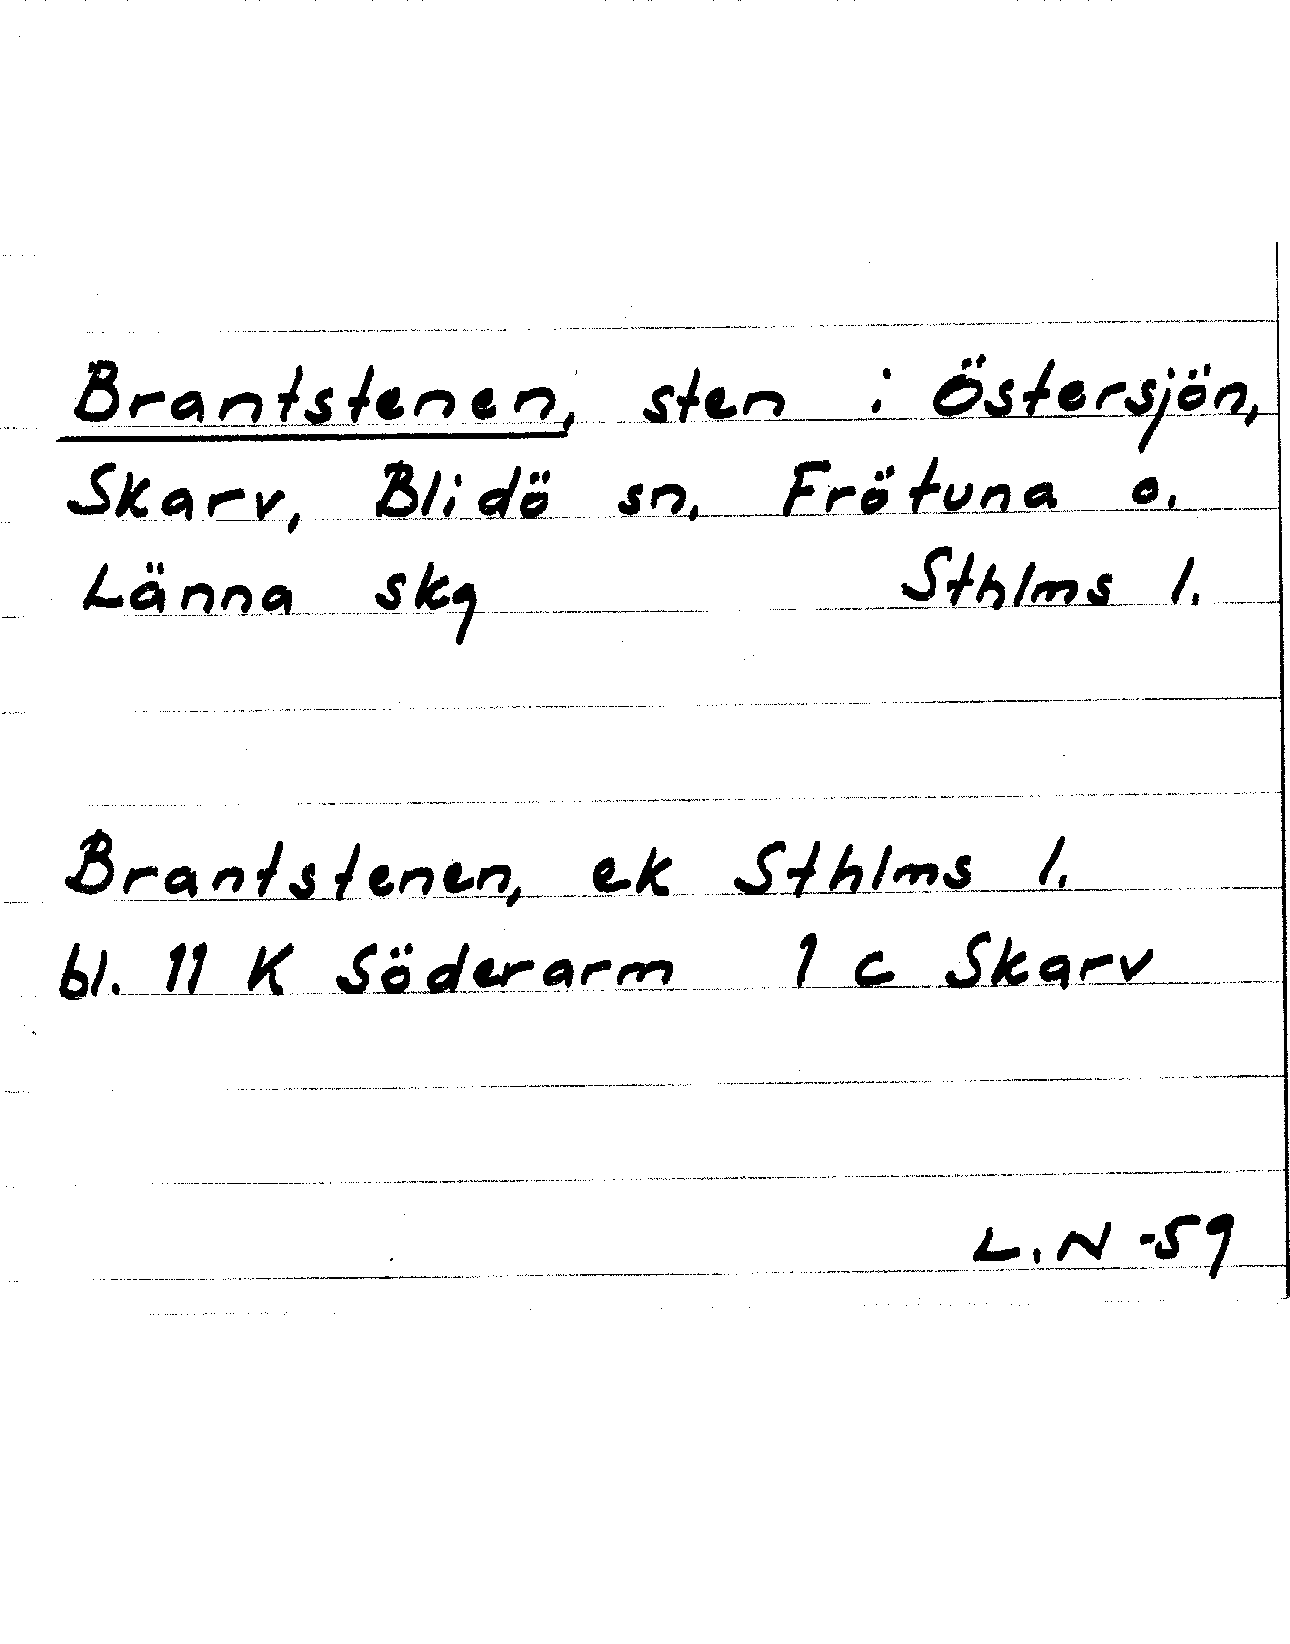 Brantstenen, sten i Östersjön,
Skarv, Blidö sn, Frötuna o.
Länna skg Sthlms l.
Brantstenen, ek Sthlms l.
bl. 11 K Söderarm 1 c Skarv
L.N -59